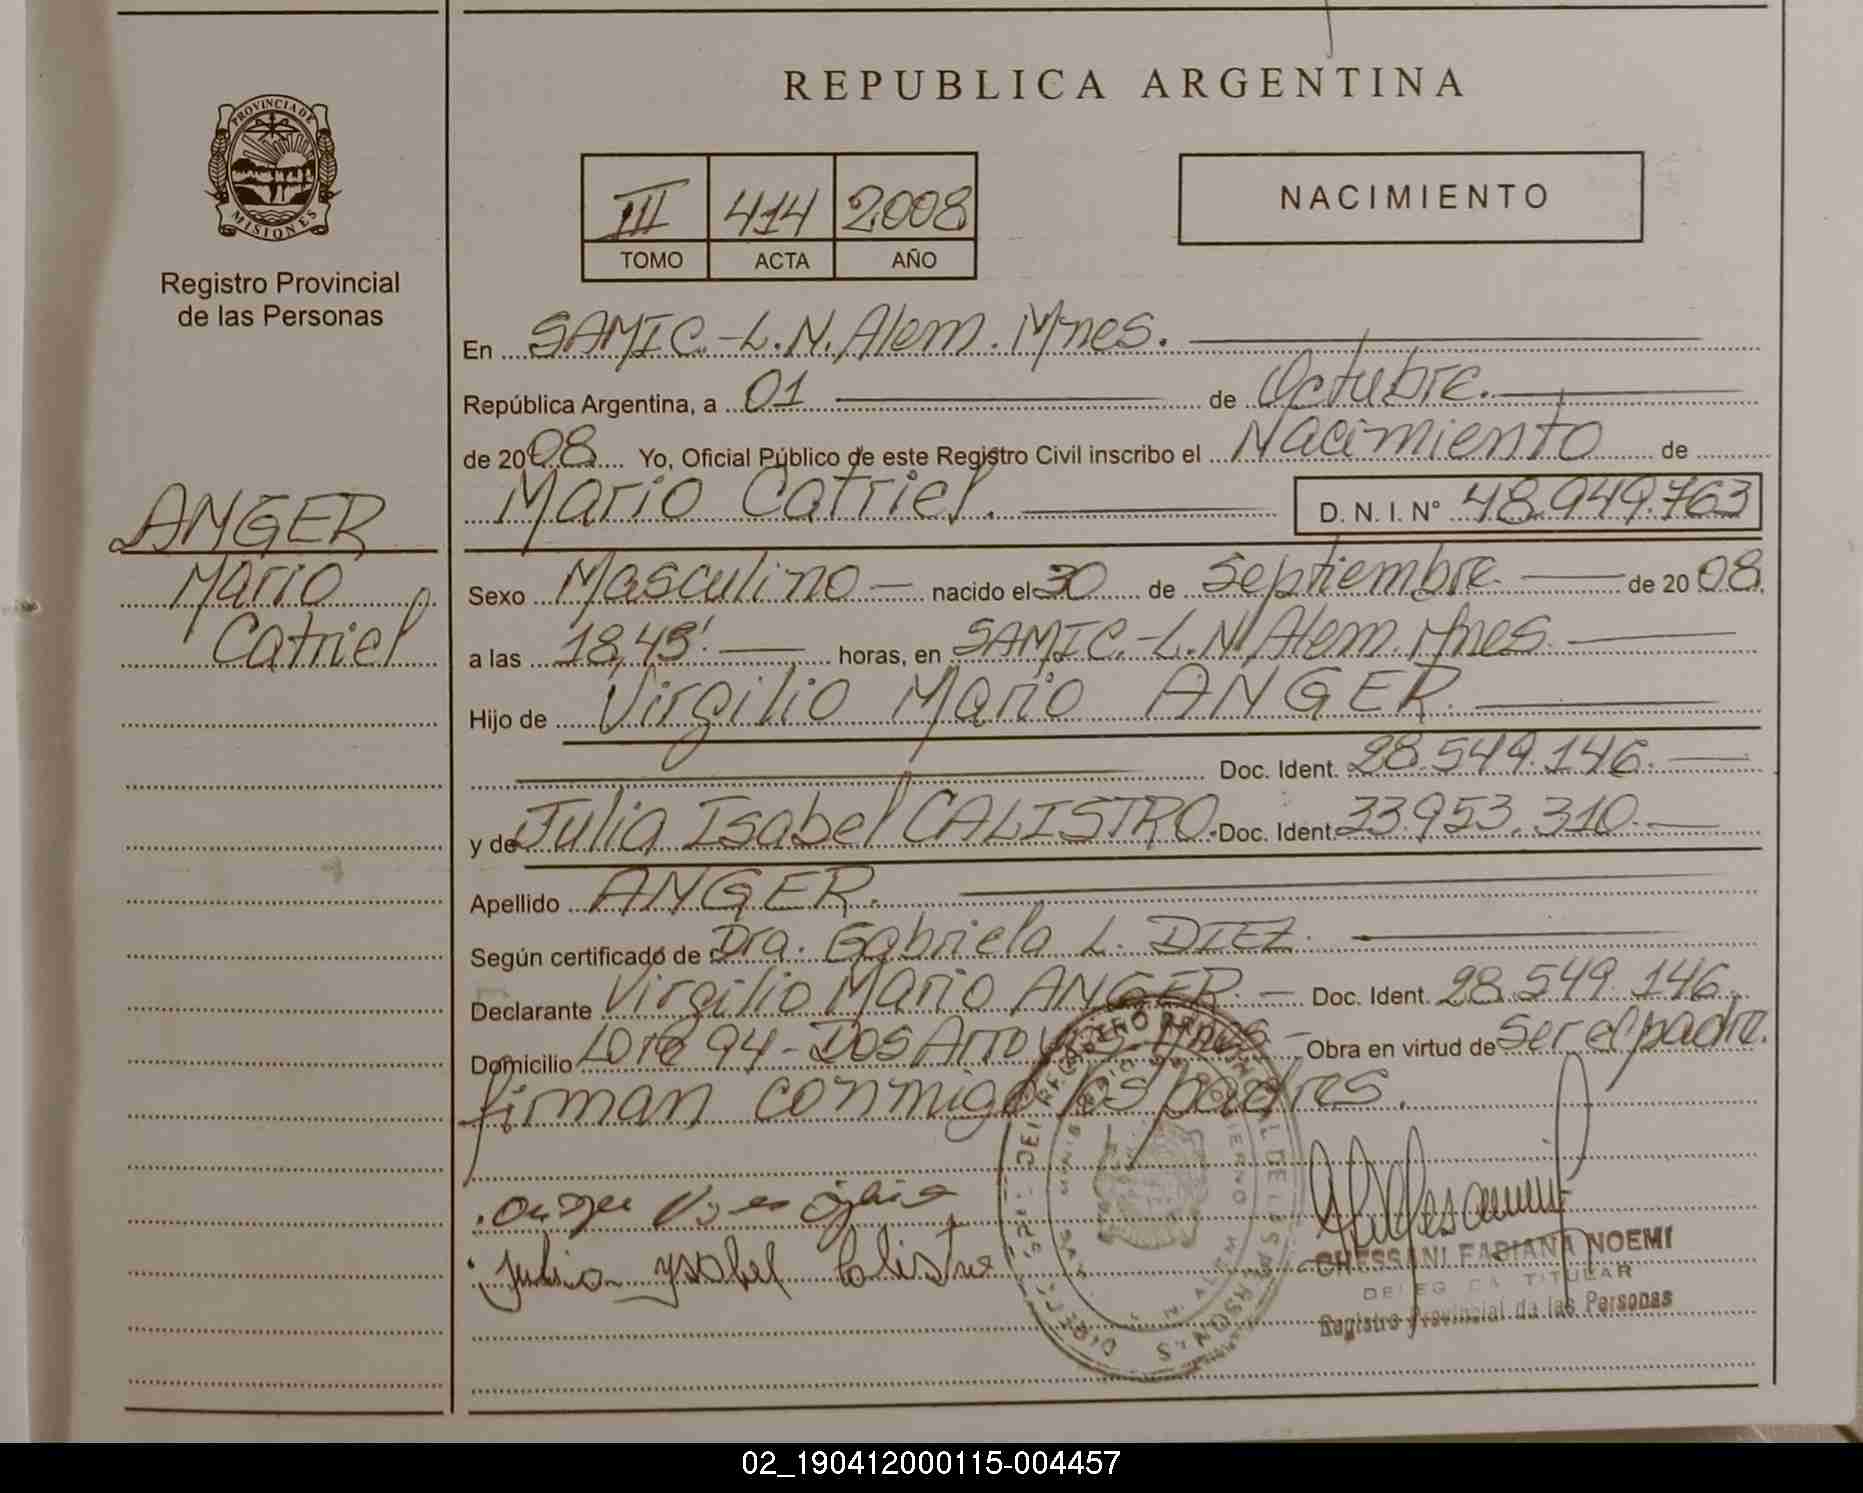 REPUBLICA ARGENTINA
PROVINCIA DE MISIONES
Registro Provincial
de las Personas
III 414 2008
TOMO ACTA AÑO
NACIMIENTO
En SAMIC.-L.N.Alem.Mnes.
República Argentina, a 01 de Octubre.
de 2008 Yo, Oficial Público de este Registro Civil inscribo el Nacimiento de
Mario Catriel. D. N. I. N° 48.949.763
ANGER
Mario
Catriel
Sexo Masculino nacido el 30 de Septiembre. de 2008.
a las 18,45' horas, en SAMIC.-L.N.Alem.Mnes.
Hijo de Virgilio Mario ANGER.
Doc. Ident. 28.549.146.
y de Julia Isabel CALISTRO. Doc. Ident. 33.953.310.
Apellido ANGER.
Según certificado de Dra. Gabriela L. DIEZ.
Declarante Virgilio Mario ANGER. Doc. Ident. 28.549.146.
Domicilio Lote 94-Dos Arroyos-Mnes- Obra en virtud de Ser el padre.
firman conmigo los padres.
Julia Ysabel Calistro
CHESSANI FABIANA NOEMI
DELEGADA TITULAR
Registro Provincial de las Personas
02_190412000115-004457